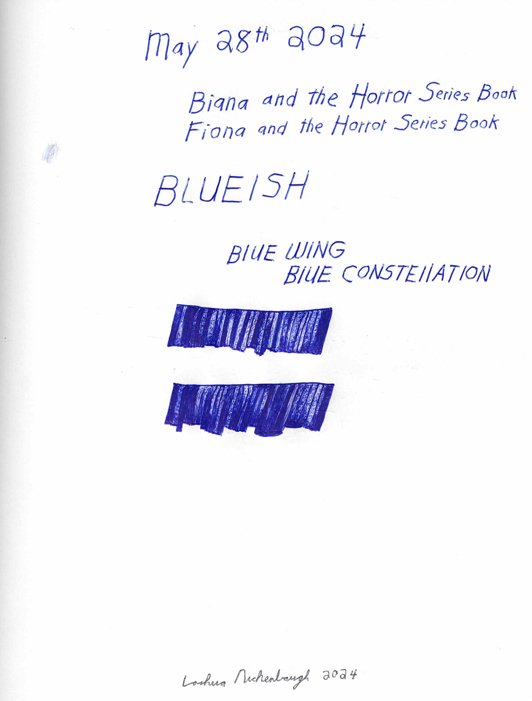 May 28th 2024
Biana and the Horror Series Book
Fiona and the Horror Series Book
BLUEISH
BlUE WING
BlUE CONSTEllATION
2024